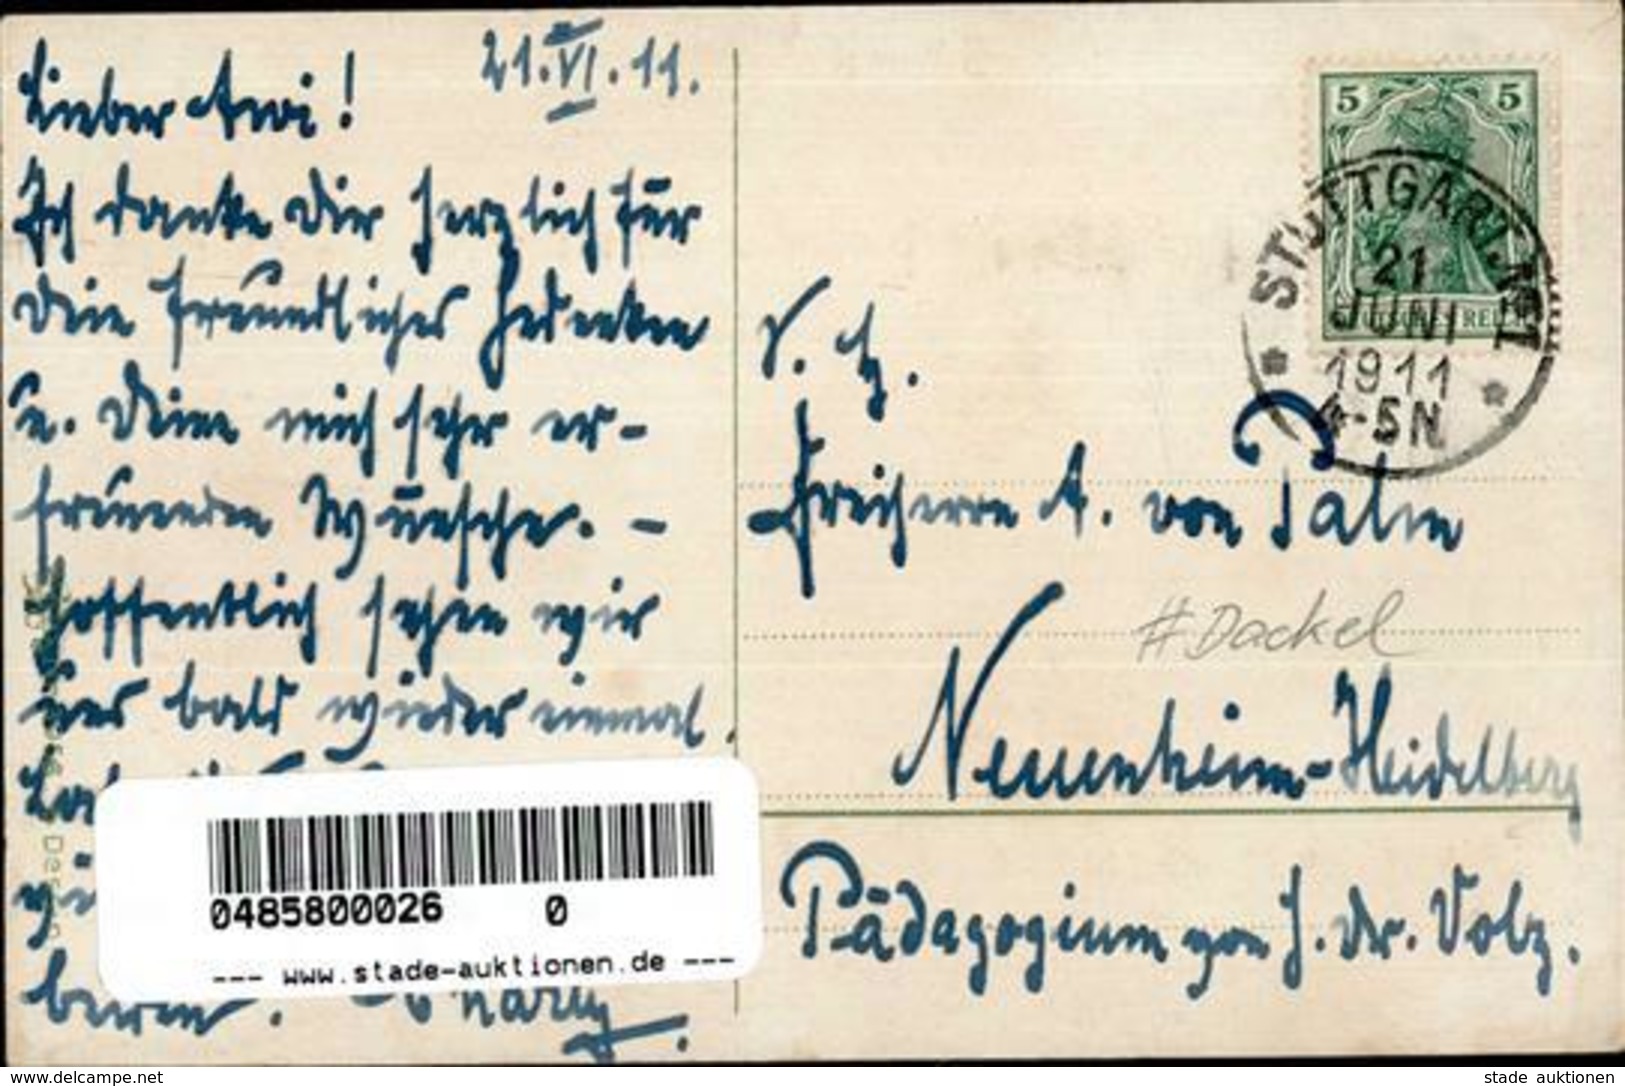 21.VI.11.
Lieber Awi!
Ich danke Dir herzlich für
Dein freundliches Gedenken
u. Deine mich sehr er-
freuenden Wünsche. -
Hoffentlich sehen wir
uns bald wieder einmal.
Charly.
5 5
STUTTGART. No 1
21
JUNI
1911
4-5N
S. H.
Freiherrn A. von Palm
#Dackel
Neuenheim-Heidelberg
Pädagogium von H. Dr. Volz.
0485800026 0
--- www.stade-auktionen.de ---
www.delcampe.net
stade auktionen